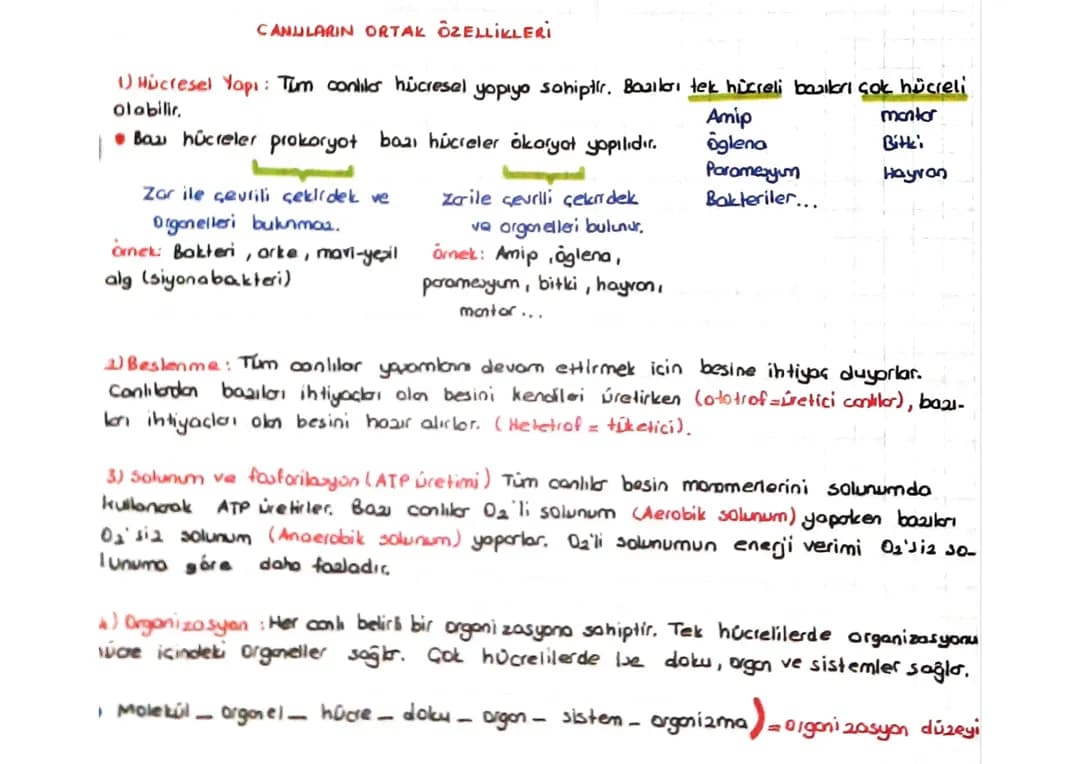 CANLILARIN ORTAK ÖZELLİKLERİ
1) Hücresel Yapı : Tüm canlılar hücresel yapıya sahiptir. Bazıları tek hücreli bazıları çok hücreli
olabilir.
Amip mantar
• Bazı hücreler prokaryot bazı hücreler ökaryot yapılıdır.
Öglena Bitki
Paramezyum Hayvan
Bakteriler...
Zar ile çevrili çekirdek ve
Organelleri bulunmaz.
Zar ile çevrili çekirdek
ve organelleri bulunur.
örnek: Bakteri, arke, mavi-yeşil
alg (siyonabakteri)
örnek: Amip, öglena,
paramezyum, bitki, hayvan,
mantar ...
2) Beslenme : Tüm canlılar yaşamlarını devam ettirmek için besine ihtiyaç duyarlar.
Canlılardan bazıları ihtiyaçları olan besini kendileri üretirken (ototrof=üretici canlılar), bazı-
ları ihtiyaçları olan besini hazır alırlar. (Hetetrof = tüketici).
3) Solunum ve fosforilasyon (ATP üretimi) Tüm canlılar besin monomerlerini solunumda
kullanarak ATP üretirler. Bazı canlılar O₂'li solunum (Aerobik solunum) yaparken bazıları
O₂'siz solunum (Anaerobik solunum) yaparlar. O₂'li solunumun enerji verimi O₂'siz so-
lunuma göre daha fazladır.
4) Organizasyon : Her canlı belirli bir organizasyona sahiptir. Tek hücrelilerde organizasyonu
hücre içindeki Organeller sağlar. Çok hücrelilerde ise doku, organ ve sistemler sağlar.
Molekül – organel – hücre – doku – organ – sistem – organizma) = organizasyon düzeyi